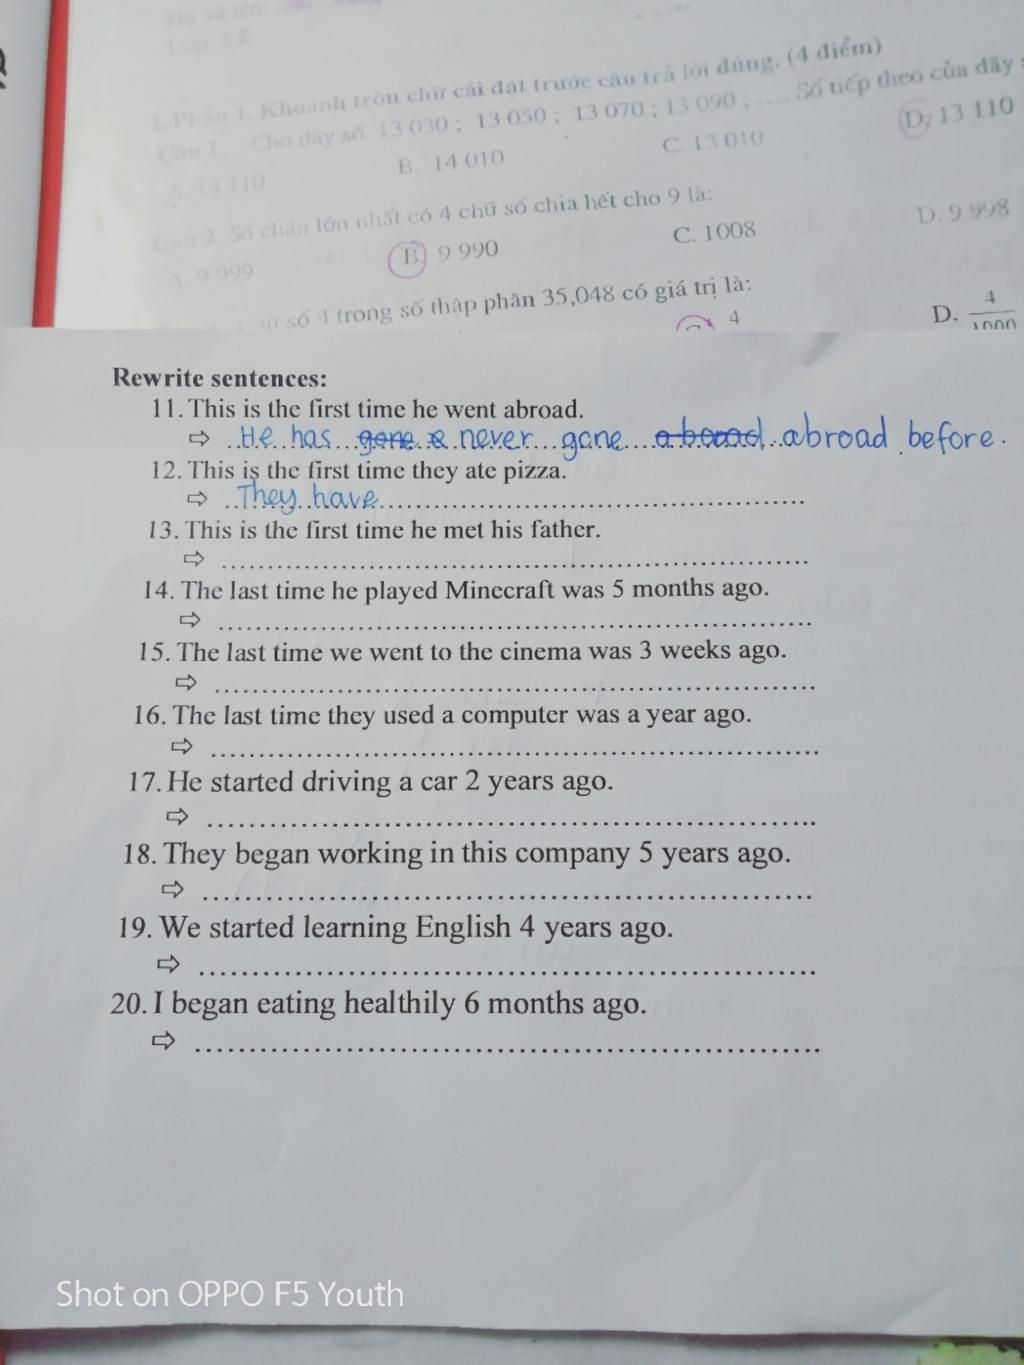 Họ và tên
Lớp. 5.E
I. Phần 1. Khoanh tròn chữ cái đặt trước câu trả lời đúng. (4 điểm)
Câu 1. Cho dãy số 13 030 ; 13 050 ; 13 070 ; 13 090 ; .... Số tiếp theo của dãy
A. 14 110 B. 14 010 C. 13 010 D. 13 110
Câu 2. Số chẵn lớn nhất có 4 chữ số chia hết cho 9 là:
A. 9 999 B. 9 990 C. 1008 D. 9 998
số 4 trong số thập phân 35,048 có giá trị là:
4 D. 4
1000
Rewrite sentences:
11. This is the first time he went abroad.
⇨ He has gone never gone abroad before.
12. This is the first time they ate pizza.
⇨ They have
13. This is the first time he met his father.
⇨
14. The last time he played Minecraft was 5 months ago.
⇨
15. The last time we went to the cinema was 3 weeks ago.
⇨
16. The last time they used a computer was a year ago.
⇨
17. He started driving a car 2 years ago.
⇨
18. They began working in this company 5 years ago.
⇨
19. We started learning English 4 years ago.
⇨
20. I began eating healthily 6 months ago.
⇨
Shot on OPPO F5 Youth